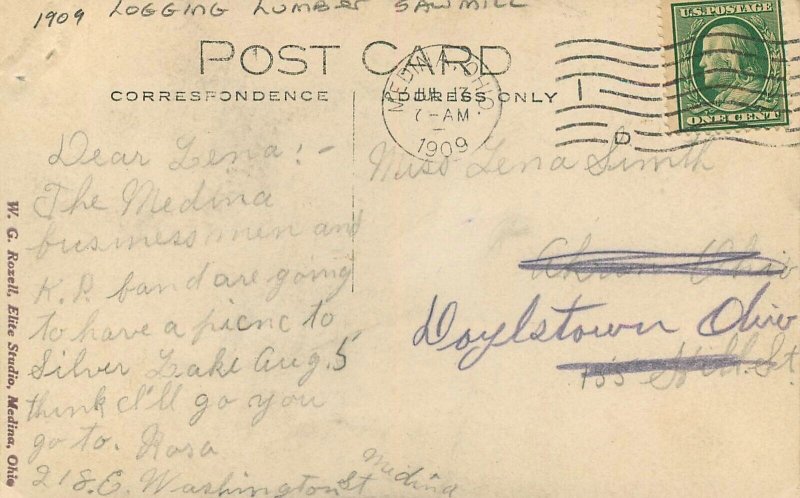 1909 LOGGING LUMBER SAWMILL
POST CARD
CORRESPONDENCE
ADDRESS ONLY
MEDINA, OHIO
JUL 17
7-AM
1909
1
D
U.S. POSTAGE
ONE CENT
Dear Lena:-
The Medina
business men and
K.P. band are going
to have a picnc to
Silver Lake Aug. 5
think I'll go you
go to. Rosa
218 E. Washington St Medina
Miss Lena Smith
Akron Ohio
Doylstown Ohio
155 Hill St.
W. G. Rozell, Elite Studio, Medina, Ohio